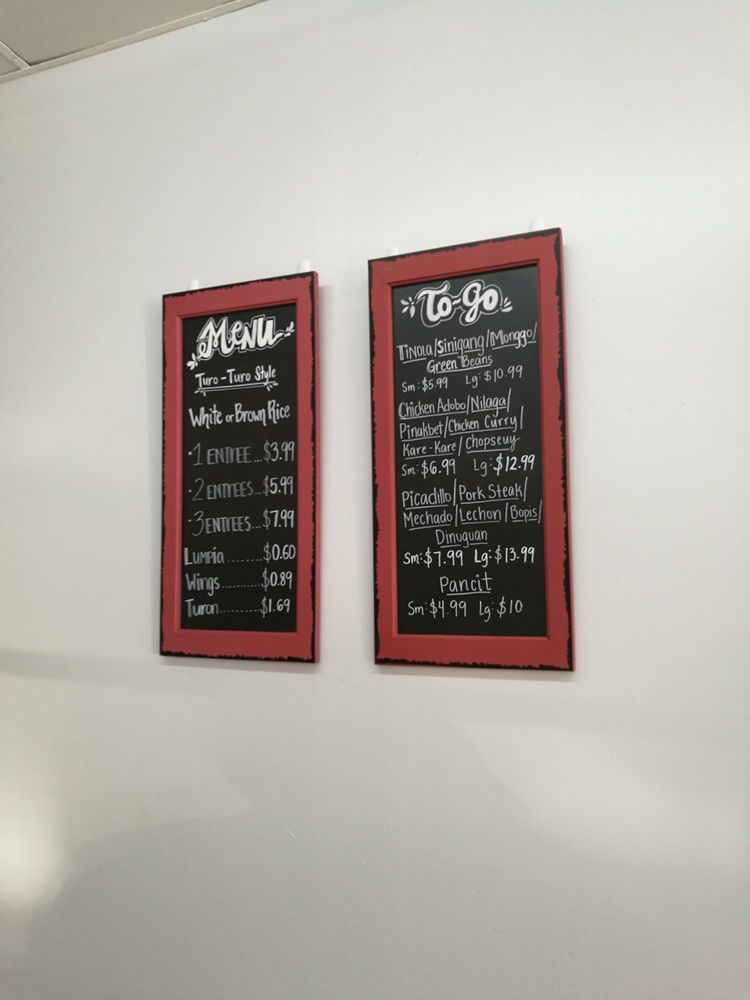 MENU
Turo-Turo Style
White or Brown Rice
·1 ENTREE...$3.99
·2 ENTREES...$5.99
·3 ENTREES...$7.99
Lumpia........$0.60
Wings........$0.89
Turon........$1.69
To-go
Tinola/Sinigang/Monggo/
Green Beans
Sm:$5.99 Lg:$10.99
Chicken Adobo/Nilaga/
Pinakbet/Chicken Curry/
Kare-Kare/Chopseuy
Sm:$6.99 Lg:$12.99
Picadillo/Pork Steak/
Mechado/Lechon/Bopis/
Dinuguan
Sm:$7.99 Lg:$13.99
Pancit
Sm:$4.99 Lg:$10